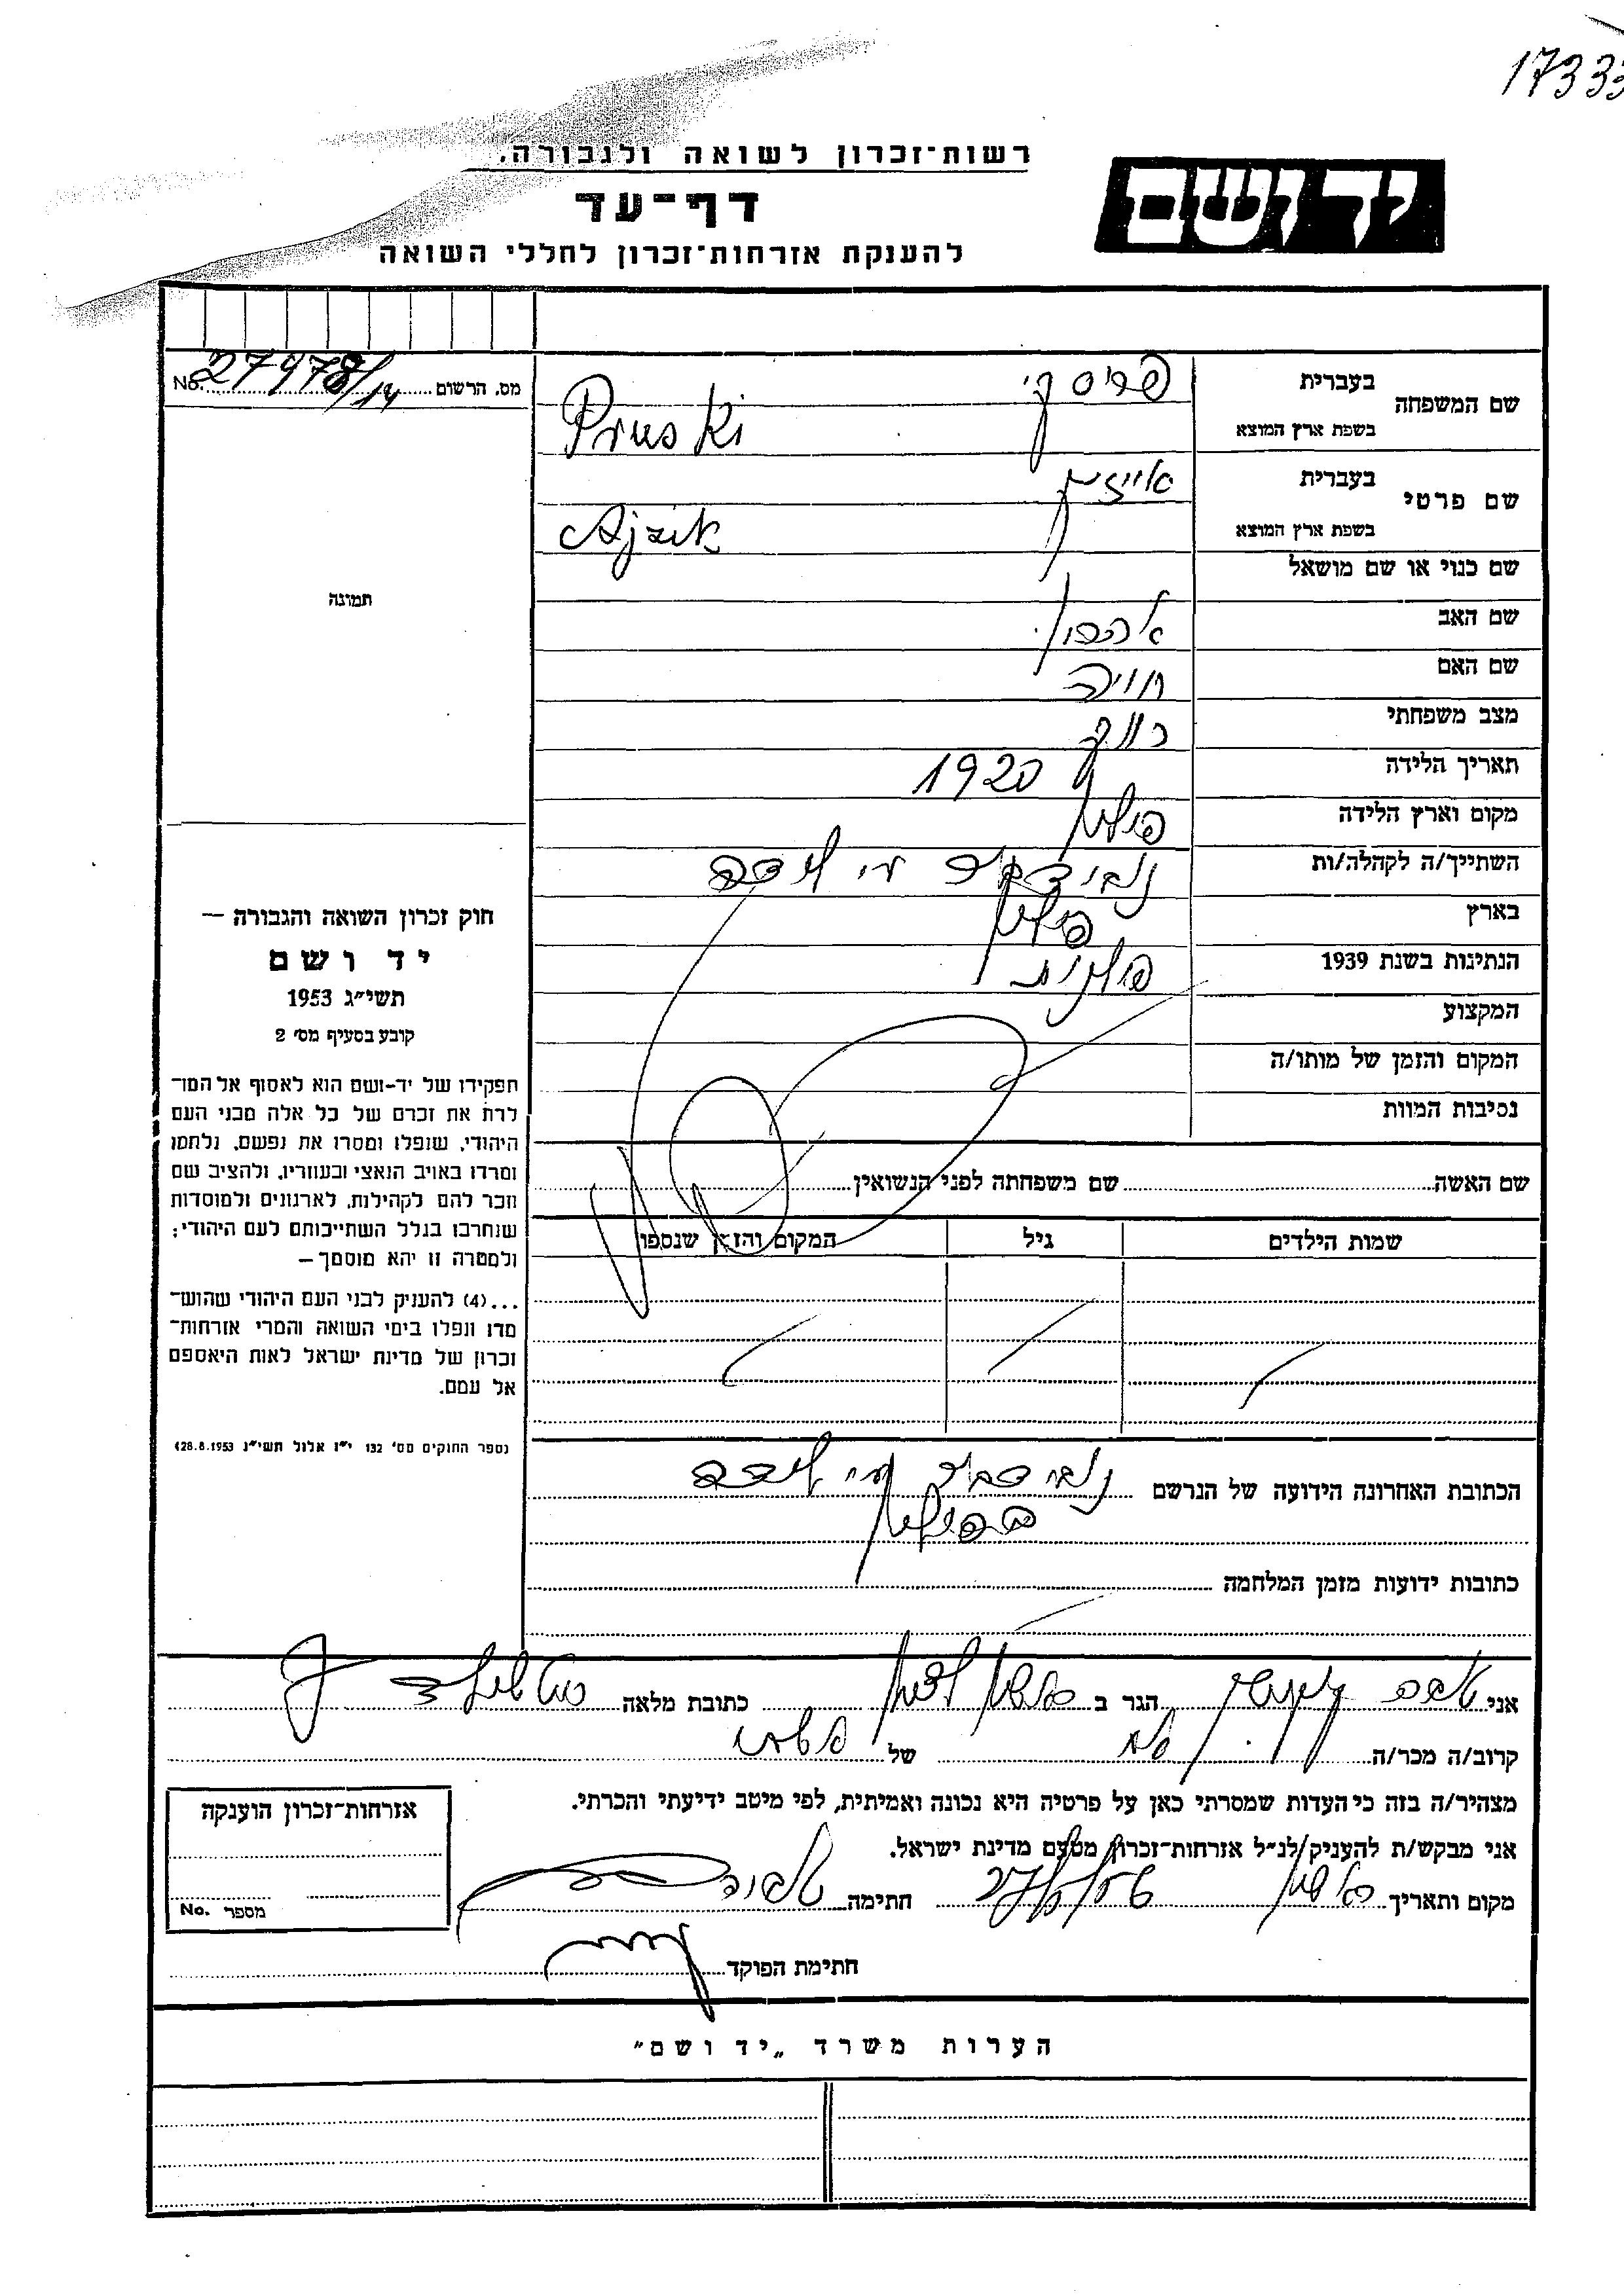 17333
רשות־זכרון לשואה ולגבורה.
יד ושם
דף־עד
להענקת אזרחות־זכרון לחללי השואה
מס. הרשום 27978/14 No.
שם המשפחה
בעברית
פרוסקי
בשפת ארץ המוצא
Pruski
שם פרטי
בעברית
אייזיק
בשפת ארץ המוצא
Ajzik
שם כנוי או שם מושאל
שם האב אהרון
שם האם חויה
מצב משפחתי רווק
תאריך הלידה 1920
מקום וארץ הלידה פולין
השתייך/ה לקהלה/ות
בארץ פולין
הנתינות בשנת 1939 פולנית
המקצוע
המקום והזמן של מותו/ה
נסיבות המוות
תמונה
חוק זכרון השואה והגבורה —
יד ושם
תשי״ג 1953
קובע בסעיף מס׳ 2
תפקידו של יד-ושם הוא לאסוף אל המו־
לדת את זכרם של כל אלה מבני העם
היהודי, שנפלו ומסרו את נפשם, נלחמו
ומרדו באויב הנאצי ובעוזריו, ולהציב שם
וזכר להם לקהילות, לארגונים ולמוסדות
שנחרבו בגלל השתייכותם לעם היהודי;
ולמטרה זו יהא מוסמך —
...(4) להעניק לבני העם היהודי שהוש־
מדו ונפלו בימי השואה והמרי אזרחות־
זכרון של מדינת ישראל לאות היאספם
אל עמם.
(ספר החוקים מס׳ 132 י״ז אלול תשי״ג 28.8.1953)
שם האשה שם משפחתה לפני הנשואין
שמות הילדים גיל המקום והזמן שנספו
הכתובת האחרונה הידועה של הנרשם
בפולין
כתובות ידועות מזמן המלחמה
אני הגר ב כתובת מלאה
קרוב/ה מכר/ה של
מצהיר/ה בזה כי העדות שמסרתי כאן על פרטיה היא נכונה ואמיתית, לפי מיטב ידיעתי והכרתי.
אני מבקש/ת להעניק לנ״ל אזרחות־זכרון מטעם מדינת ישראל.
מקום ותאריך חתימה
חתימת הפוקד
אזרחות־זכרון הוענקה
מספר No.
הערות משרד „יד ושם״